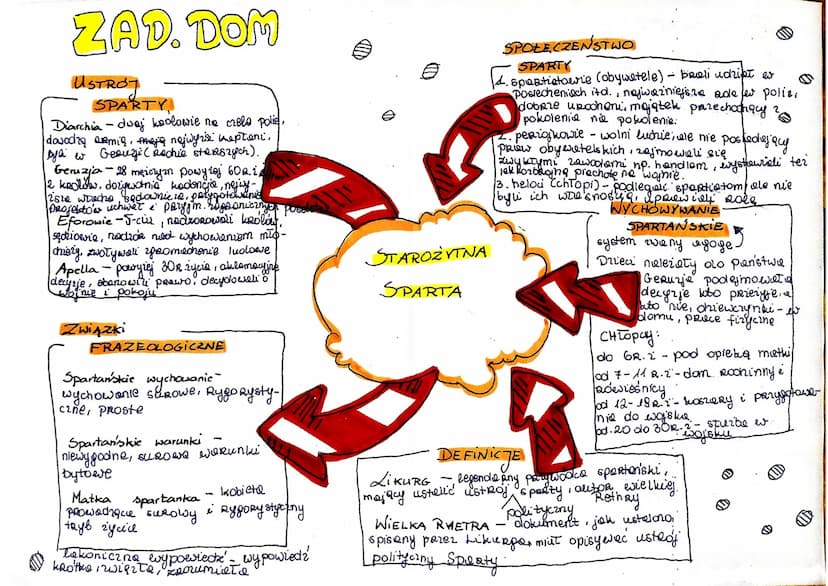 ZAD. DOM
USTRÓJ
SPARTY
Diarchia - dwaj królowie na czele polis,
dowodzą armią, mają najwyżsi kapłani,
byli w Geruzji (radzie starszych).
Geruzja - 28 mężczyzn powyżej 60 R. ż
2 królów, dożywotnia kadencja, najwy-
ższa władza sądownicza, przygotowanie
projektów uchwał i przyjm. zagranicznych posłów
Eforowie - 5-ciu, nadzorowali królów,
sędziowie, nadzór nad wychowaniem mło-
dzieży, zwoływali zgromadzenie ludowe
Apella - powyżej 30 R. życia, aklamacyjne
decyzje, stanowili prawo, decydowali o
wojnie i pokoju
ZWIĄZKI
FRAZEOLOGICZNE
Spartańskie wychowanie -
wychowanie surowe, rygorysty-
czne, proste
Spartańskie warunki -
niewygodne, surowe warunki
bytowe
Matka spartanka - kobieta
prowadząca surowy i rygorystyczny
tryb życia
Lakoniczna wypowiedź - wypowiedź
krótka, zwięzła, zrozumiała
STAROŻYTNA
SPARTA
SPOŁECZEŃSTWO
SPARTY
1. spartiatowie (obywatele) - brali udział w
posiedzeniach itd., najważniejsza rola w polis,
dobrze urodzeni, majątek przechodzący z
pokolenia na pokolenie.
2. periojkowie - wolni ludzie, ale nie posiadający
praw obywatelskich, zajmowali się
zwykłymi zawodami np. handlem, wystawiali też
lekkozbrojną piechotę na wojnie.
3. heloci (chłopi) - podlegali spartiatom, ale nie
byli ich własnością, uprawiali rolę
WYCHOWYWANIE
SPARTAŃSKIE
system zwany agoge
Dzieci należały do państwa
Geruzja podejmowała
decyzje kto przeżyje, a
kto nie, dziewczynki - w
domu, prace fizyczne
CHŁOPCY:
do 6 R. ż - pod opieką matki
od 7-11 R. ż - dom rodzinny i
rówieśnicy
od 12-18 R. ż - koszary i przygotowa-
nie do wojska
od 20 do 30 R. ż - służba w
wojsku
DEFINICJE
LIKURG - legendarny przywódca spartański,
mający ustalić ustrój sparty, autor wielkiej
polityczny
Rethry
WIELKA RHETRA - dokument, jak ustalono,
spisany przez Likurga, miał opisywać ustrój
polityczny Sparty